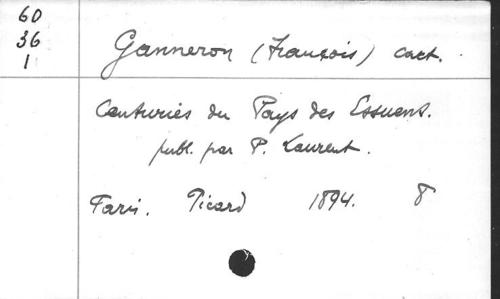 60
36
1
Ganneron (François) cart.
Centuries du Pays des Essuens.
publ. par P. Laurent.
Paris. Picard 1894. 8